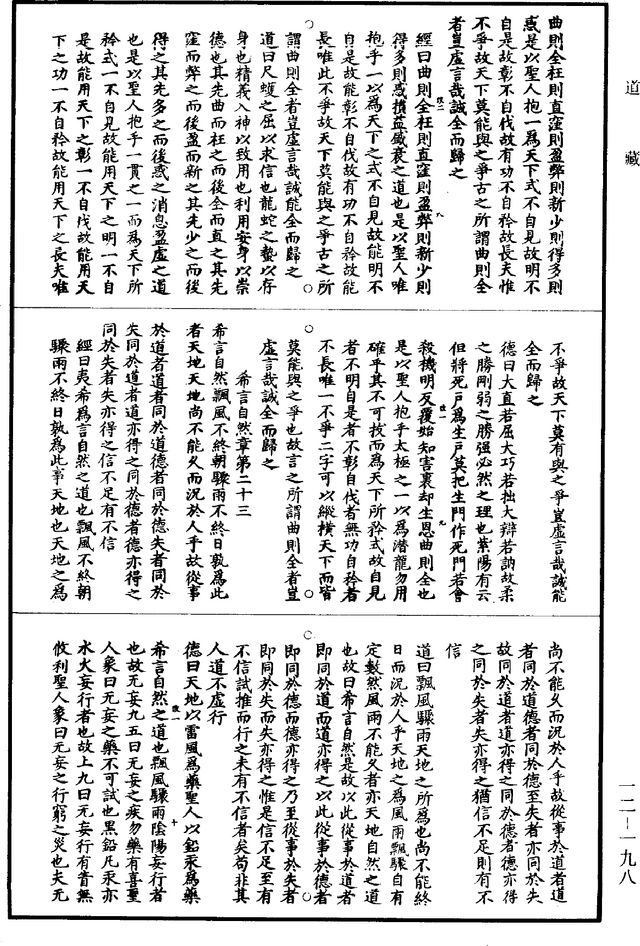 道藏
曲則全枉則直窪則盈弊則新少則得多則
惑是以聖人抱一為天下式不自見故明不
自是故彰不自伐故有功不自矜故長夫惟
不爭故天下莫能與之爭古之所謂曲則全
者豈虛言哉誠全而歸之
經曰曲則全枉則直窪則盈弊則新少則
得多則惑損益盛衰之道也是以聖人唯
抱乎一以為天下之式不自見故能明不
自是故能彰不自伐故有功不自矜故能
長唯此不爭故天下莫能與之爭古之所
謂曲則全者豈虛言哉誠能全而歸之
道曰尺蠖之屈以求信也龍蛇之蟄以存
身也精義入神以致用也利用安身以崇
德也其先曲而枉之而後全而直之其先
窪而弊之而後盈而新之其先少之而後
得之其先多之而後惑之消息盈虛之道
也是以聖人抱乎一貫之一而為天下所
矜式一不自見故能用天下之明一不自
是故能用天下之彰一不自伐故能用天
下之功一不自矜故能用天下之長夫唯
不爭故天下莫有與之爭豈虛言哉誠能
全而歸之
德曰大直若屈大巧若拙大辯若訥故柔
之勝剛弱之勝強必然之理也紫陽有云
但將死戶為生戶莫把生門作死門若會
殺機明反覆始知害裏却生恩曲則全也
是以聖人抱乎太極之一以為潛龍勿用
確乎其不可拔而為天下所矜式故自見
者不明自是者不彰自伐者無功自矜者
不長唯一不爭二字可以縱橫天下而皆
莫能與之爭也故言之所謂曲則全者豈
虛言哉誠全而歸之
希言自然章第二十三
希言自然飄風不終朝驟雨不終日孰為此
者天地天地尚不能久而況於人乎故從事
於道者道者同於道德者同於德失者同於
失同於道者道亦得之同於德者德亦得之
同於失者失亦得之信不足有不信
經曰夷希為言自然之道也飄風不終朝
驟雨不終日孰為此事天地也天地之為
尚不能久而況於人乎故從事於道者道
者同於道德者同於德至失者亦同於失
故同於道者道亦得之同於德者德亦得
之同於失者失亦得之猶信不足則有不
信
道曰飄風驟雨天地之所為也尚不能終
日而況於人乎天地之為風雨飄驟自有
定數然風雨不能久者亦天地自然之道
也故曰希言自然是故以此從事於道者
即同於道而道亦得之以此從事於德者
即同於德而德亦得之乃至從事於失者
即同於失而失亦得之惟是信不足至有
不信試推而行之未有不信者矣苟非其
人道不虛行
德曰天地以雷風為藥聖人以鉛汞為藥
希言自然之道也飄風驟雨陰陽妄行者
也故无妄九五曰无妄之疾勿藥有喜聖
人象曰无妄之藥不可試也黑鉛凡汞亦
水火妄行者也故上九曰无妄行有眚無
攸利聖人象曰无妄之行窮之災也夫无
一二—一九八